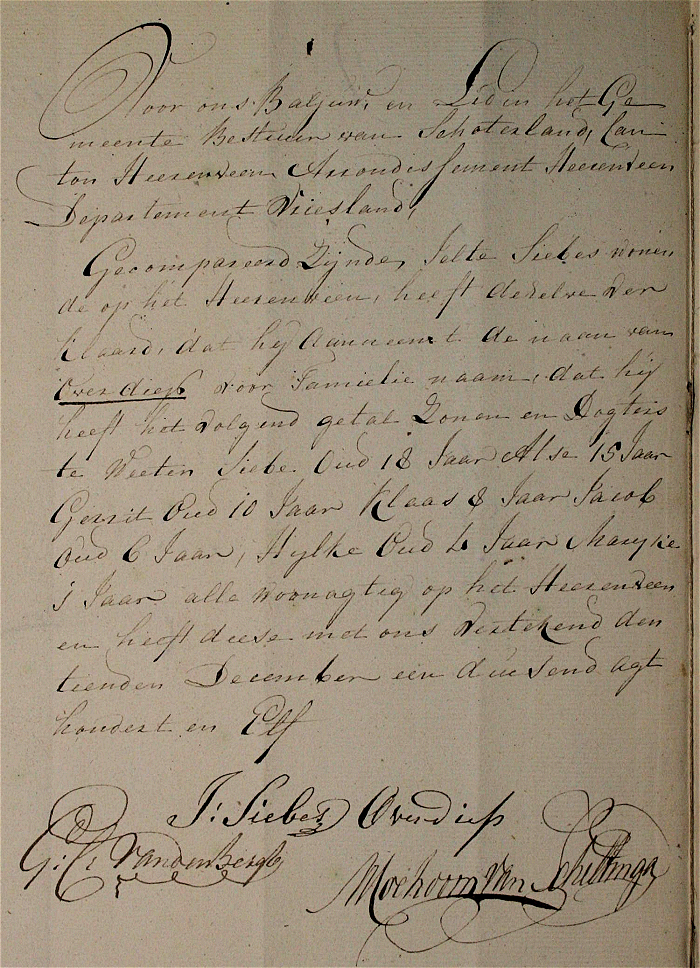 Voor ons Baljuw, en Lid in het Ge
meente Bestuur van Schoterland, Can
ton Heerenveen Arrondissement Heerenveen
Departement Vriesland,
Gecompareerd Zijnde, Jelte Siebes wonen
de op het Heerenveen, heeft dezelve Ver
klaard, dat hij Aanneemt de naam van
Overdiep voor Familie naam, dat hij
heeft het volgend getal Zonen en Dogters
te Weeten Siebe Oud 18 Jaar Alse 15 Jaar
Gerrit Oud 10 Jaar Klaas 8 Jaar Jacob
Oud 6 Jaar, Hylke Oud 4 Jaar Maryke
1 Jaar alle woonagtig op het Heerenveen
en heeft deese met ons Vertekend den
tienden December een duisend agt
hondert en Elf
J: Siebes Overdiep
G: C: van den Bergh
van Scheltinga